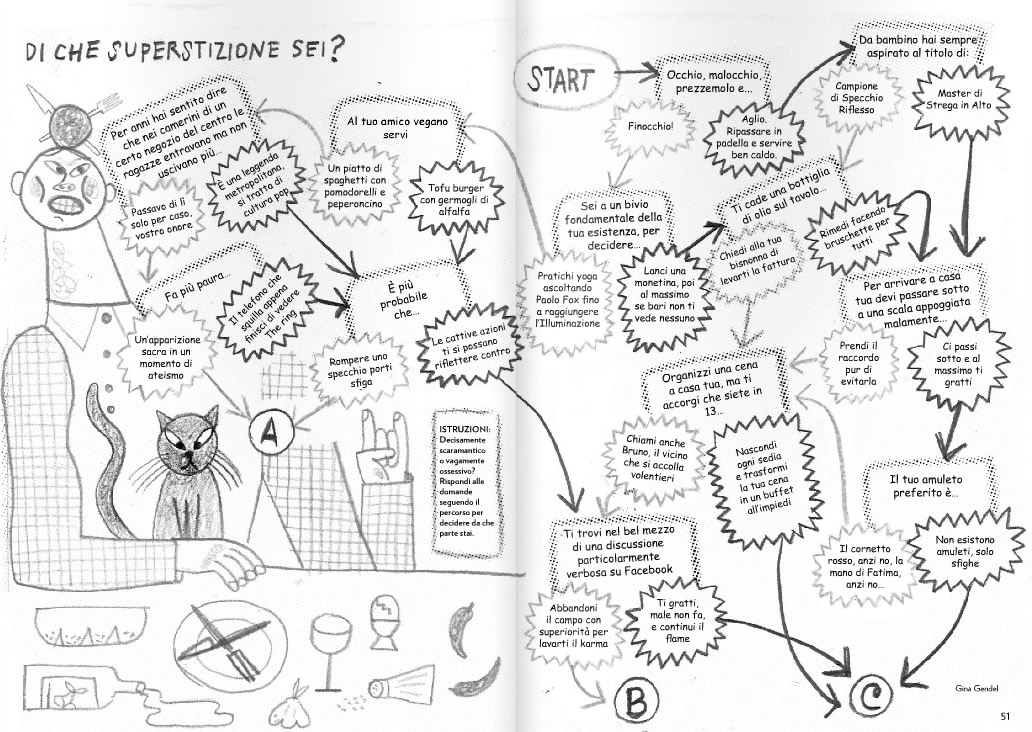 DI CHE SUPERSTIZIONE SEI?
Per anni hai sentito dire
che nei camerini di un
certo negozio del centro le
ragazze entravano ma non
uscivano più...
Passavo di lì
solo per caso,
vostro onore
È una leggenda
metropolitana,
si tratta di
cultura pop
Al tuo amico vegano
servi
Un piatto di
spaghetti con
pomodorelli e
peperoncino
Tofu burger
con germogli di
alfalfa
Fa più paura...
Un'apparizione
sacra in un
momento di
ateismo
Il telefono che
squilla appena
finisci di vedere
The ring
È più
probabile
che...
Rompere uno
specchio porti
sfiga
Le cattive azioni
ti si possano
riflettere contro
A
ISTRUZIONI:
Decisamente
scaramantico
o vagamente
ossessivo?
Rispondi alle
domande
seguendo il
percorso per
decidere da che
parte stai.
START
Occhio, malocchio,
prezzemolo e...
Finocchio!
Aglio.
Ripassare in
padella e servire
ben caldo.
Da bambino hai sempre
aspirato al titolo di:
Campione
di Specchio
Riflesso
Master di
Strega in Alto
Sei a un bivio
fondamentale della
tua esistenza, per
decidere...
Pratichi yoga
ascoltando
Paolo Fox fino
a raggiungere
l'Illuminazione
Lanci una
monetina, poi
al massimo
se bari non ti
vede nessuno
Ti cade una bottiglia
di olio sul tavolo...
Chiedi alla tua
bisnonna di
levarti la fattura
Rimedi facendo
bruschette per
tutti
Per arrivare a casa
tua devi passare sotto
a una scala appoggiata
malamente...
Prendi il
raccordo
pur di
evitarla
Ci passi
sotto e al
massimo ti
gratti
Organizzi una cena
a casa tua, ma ti
accorgi che siete in
13...
Chiami anche
Bruno, il vicino
che si accolla
volentieri
Nascondi
ogni sedia
e trasformi
la tua cena
in un buffet
all'impiedi
Il tuo amuleto
preferito è...
Il cornetto
rosso, anzi no, la
mano di Fatima,
anzi no...
Non esistono
amuleti, solo
sfighe
Ti trovi nel bel mezzo
di una discussione
particolarmente
verbosa su Facebook
Abbandoni
il campo con
superiorità per
lavarti il karma
Ti gratti,
male non fa,
e continui il
flame
B
C
Gina Gendel
51